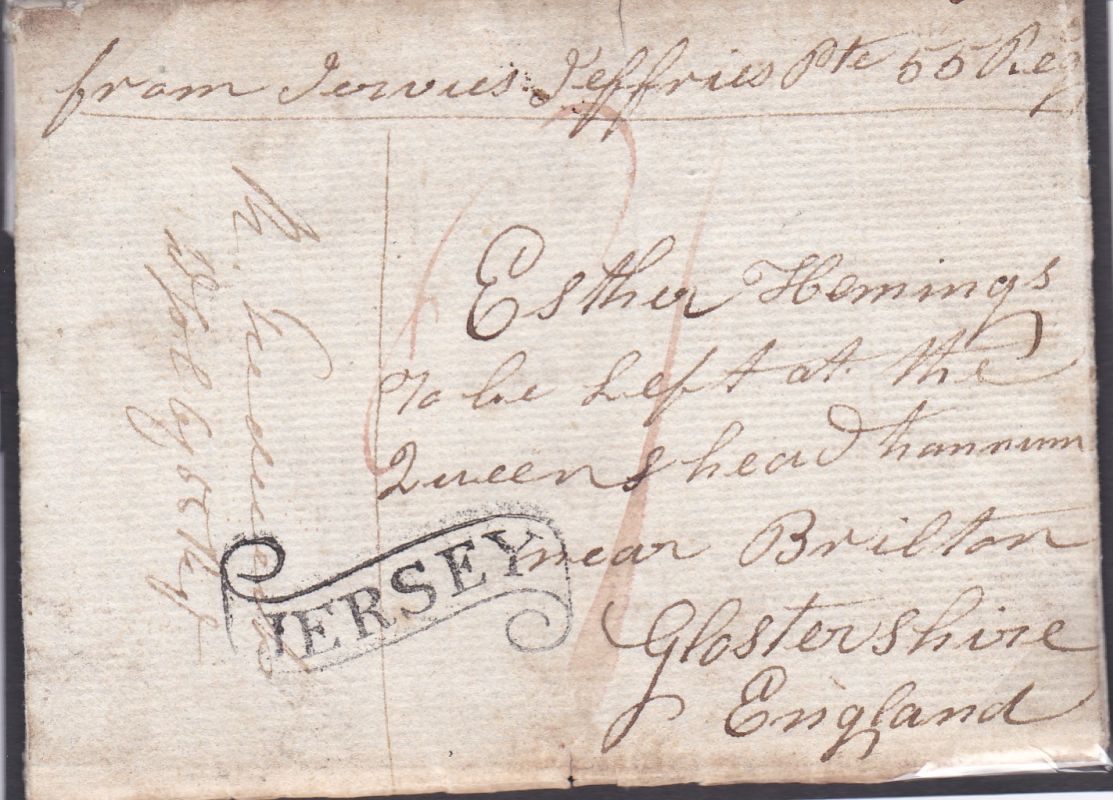 from Jervies Jeffries Pte 55 Reg
Esther Hemings
to be Left at the
Queens head hannum
near Brilton
Glostershire
England
JERSEY
55th Regt